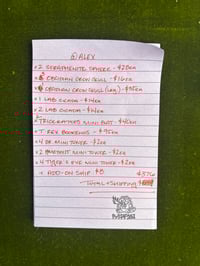 @ALEX
x2 SERAPHENITE SPHERE - $28ea
x5 OBSIDIAN CROW SKULL - $16ea
OBSIDIAN CROW SKULL (LRG) - $35ea
x1 LAB CICADA - $14ea
x2 LAB CICADA - $14ea
TRICERATOPS MINI BUST - $40ea
T. REX BOOKENDS - $95ea
x4 MINI TOWER - $2ea
x2 AMETHYST MINI TOWER - $2ea
x4 TIGER'S EYE MINI TOWER - $2ea
ADD-ON SHIP $8
TOTAL + SHIPPING